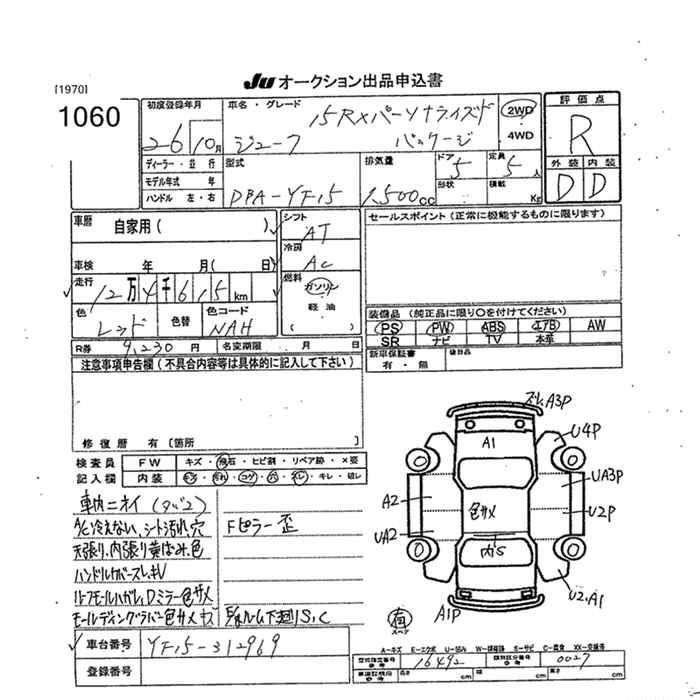 [1970]
JU オークション出品申込書
1060
初度登録年月 26年10月
車名・グレード
ジューク
15RXパーソナライズド
パッケージ
2WD
4WD
評価点
R
外装 内装
D D
ディーラー・並行
モデル年式 年
ハンドル 左・右
型式
DBA-YF15
排気量
1,500cc
ドア 5
定員 5人
形状
積載 Kg
車歴 自家用( )
車検 年 月( 日)
走行 12万4千615km
色 レッド
色替
色コード NAH
シフト AT
冷房 AC
燃料 ガソリン
軽油
( )
セールスポイント(正常に機能するものに限ります)
装備品(純正品に限り○を付けてください)
PS PW ABS エアB AW
SR ナビ TV 本革
新車保証書
有・無
後日品
R券 9,230円
名変期限 月 日
注意事項申告欄(不具合内容等は具体的に記入して下さい)
修復歴 有〔箇所 〕
検査員
記入欄
FW キズ・飛石・ヒビ割・リペア跡・×要
内装 キズ・汚れ・コゲ・穴・スレ・キレ・切レ
車内ニオイ(タバコ)
A/C冷えない、シート汚れ、穴
天張り、内張り黄ばみ、色
ハンドルカバースレ、キレ
ルーフモールハガレ、Dミラー色サメ
モールディングラバー色サメ キズ
Fピラー歪
下廻りS,C
ズレ、A3P
A1
U4P
UA3P
U2P
A2
UA2
色サメ
内S
U2,A1
A1P
有
スペア
車台番号 YF15-312969
登録番号
A-キズ E-エクボ U-凹み W-補修跡 S-サビ C-腐食 XX-交換等
型式指定番号 参考 16492
類別区分番号 参考 0027
車両寸法 参考 長さ cm 幅 cm 高さ cm